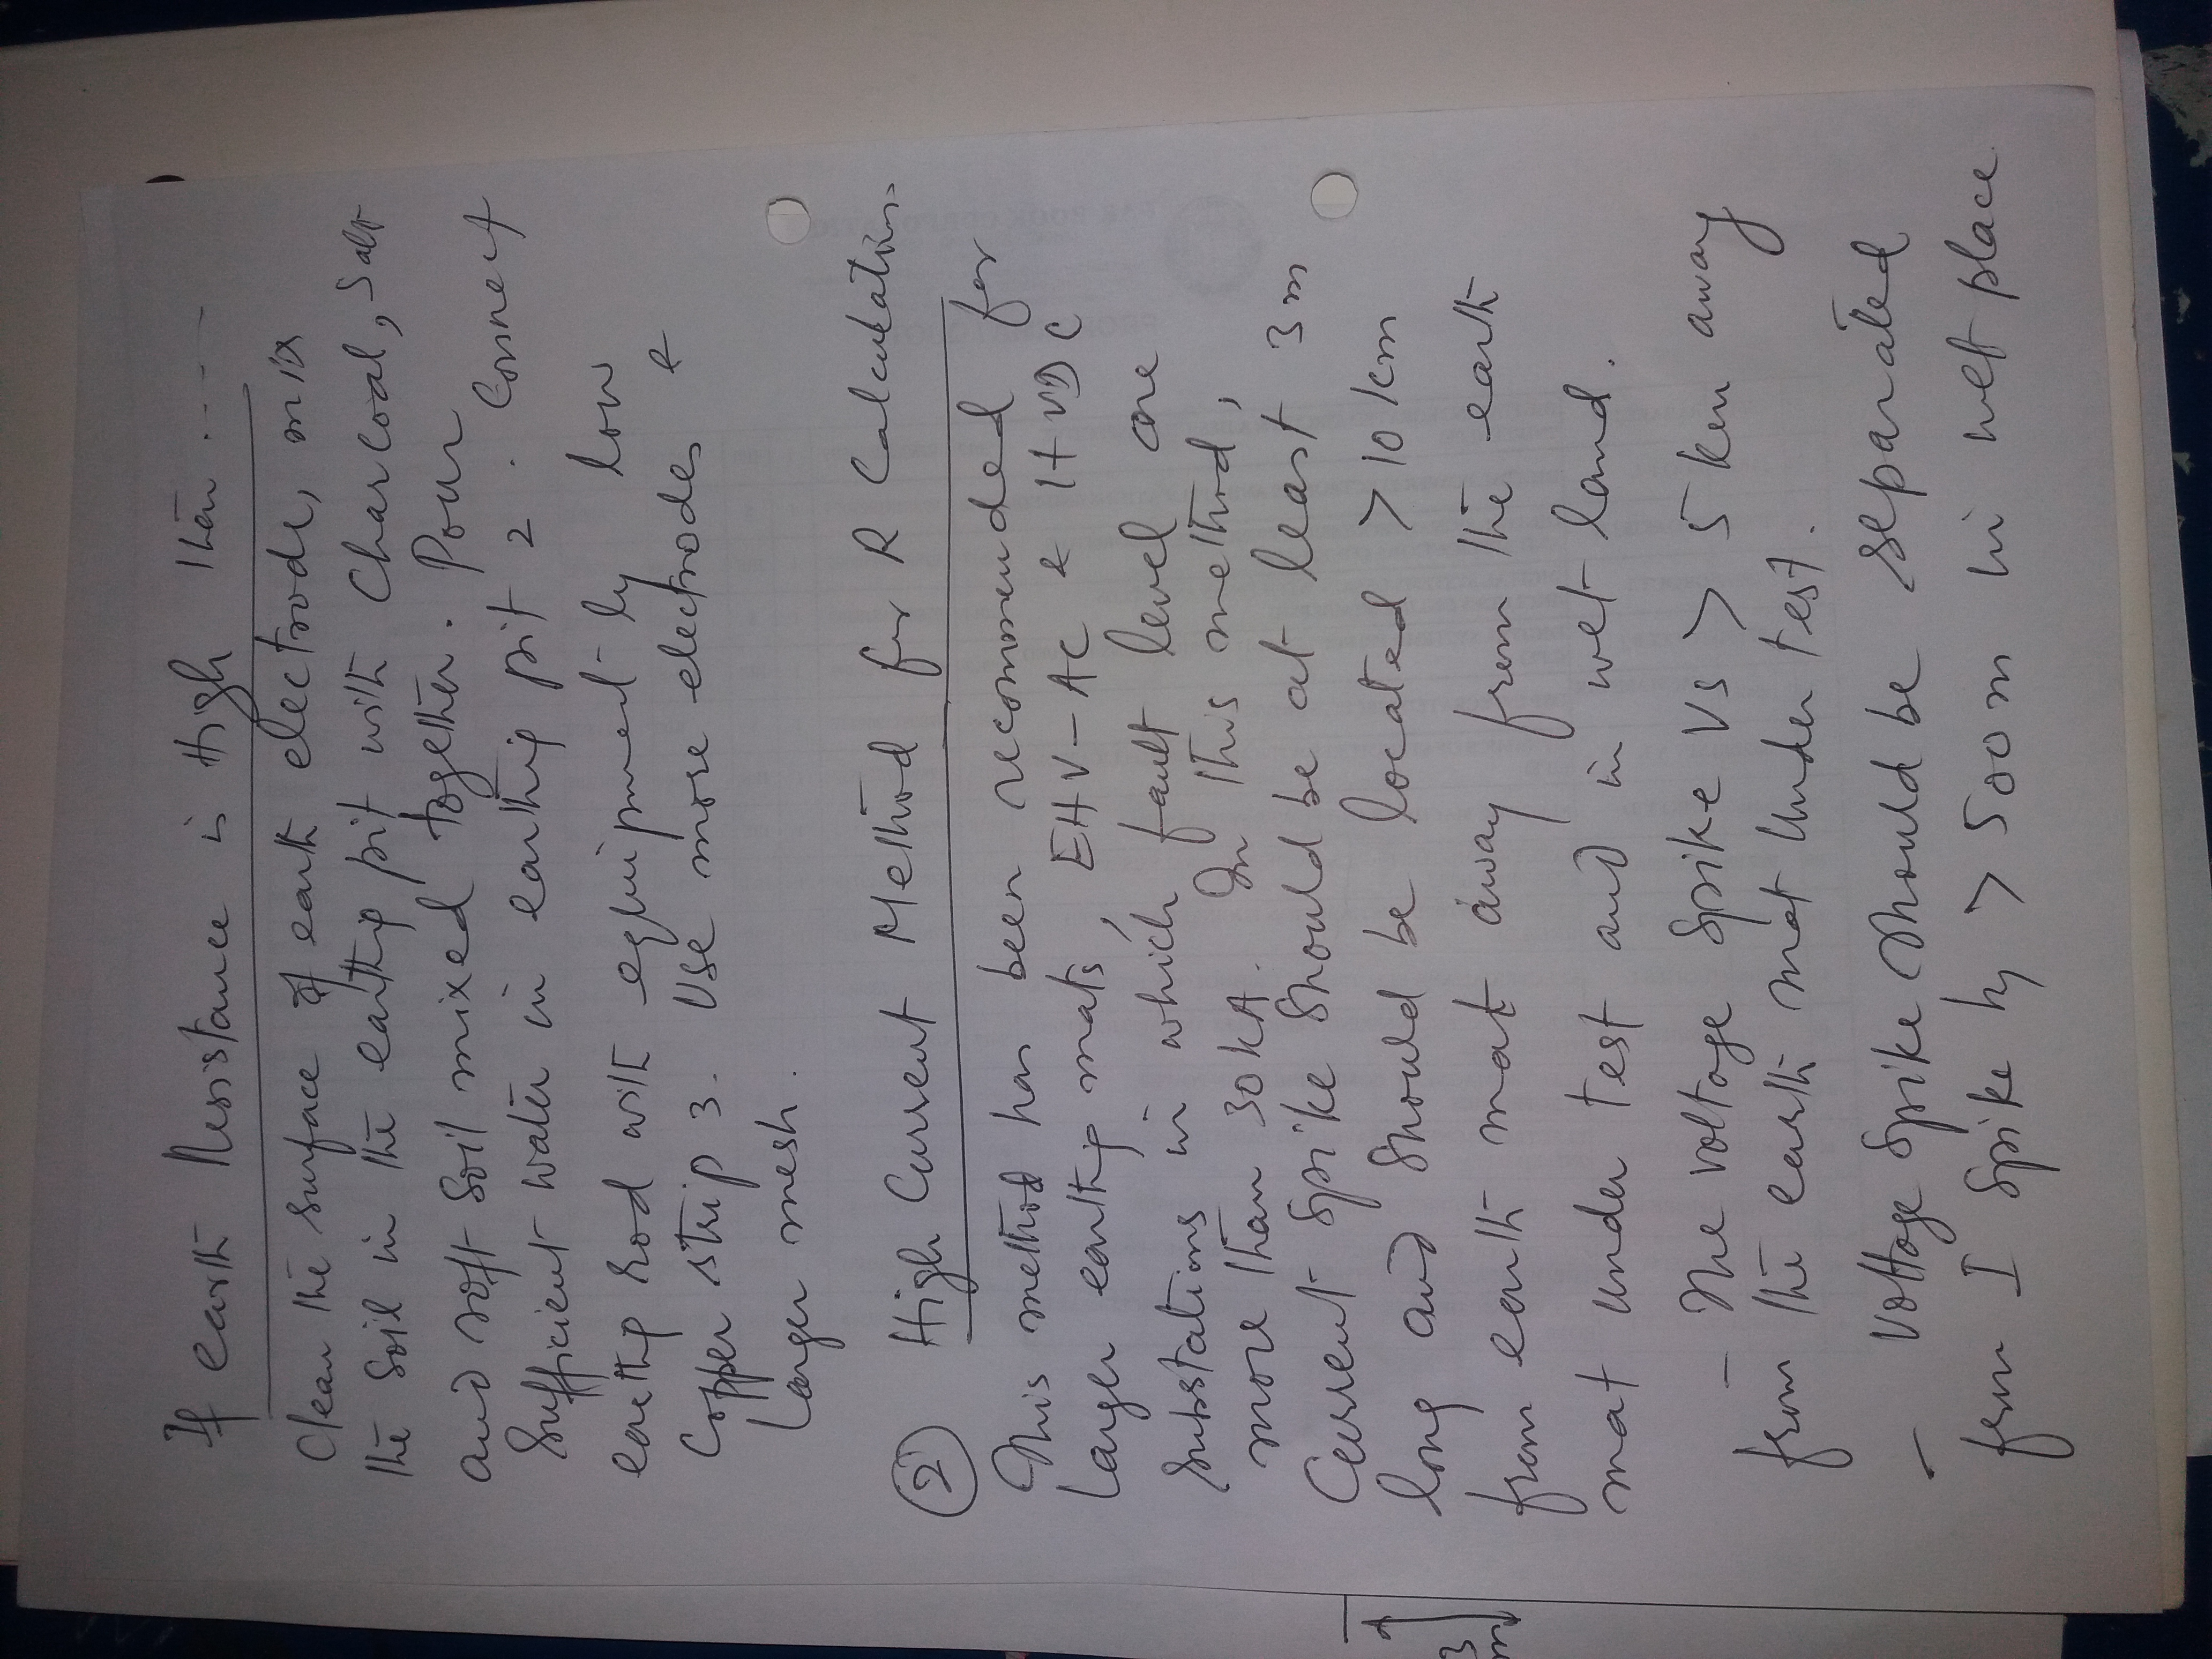 If earth Resistance is High then ----
Clean the surface of earth electrode, mix
the soil in the earthig pit with Charcoal, Salt
and soft soil mixed together. Pour
Sufficient water in earthig pit 2. Connect
earthig rod with equipment by low
Copper strip 3. Use more electrodes &
larger mesh.
2 High Current Method for R Calculations
This method has been recommended for
larger earthig mats, EHV-AC & HVDC
substations in which fault level are
more than 30kA. In this method,
Current Spike Should be at least 3m
long and should be located > 10 km
from earth mat away from the earth
mat under test and in wet land.
3
m
- The voltage Spike Vs > 5 km away
from the earth mat Under test.
- Voltage Spike Should be separated
from I Spike by > 500m in wet place